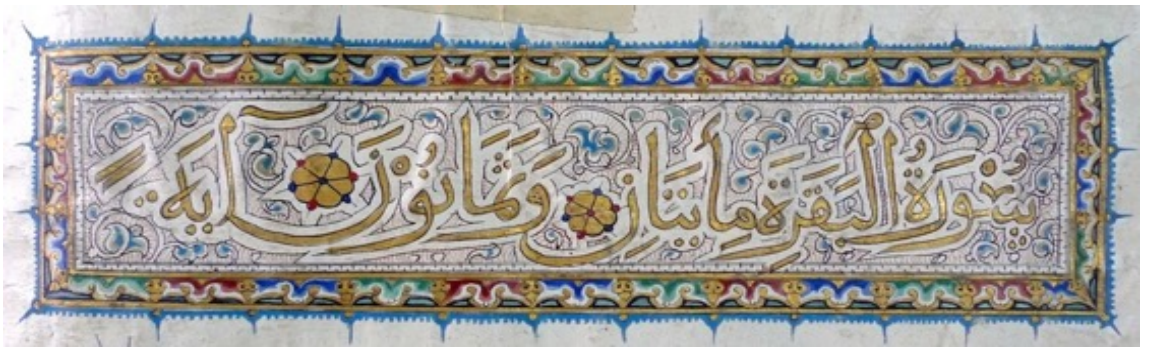 سُوْرَةُ الْبَقَرَةِ مِأيتَانِ وَثَمَانُوْنَ آيَة